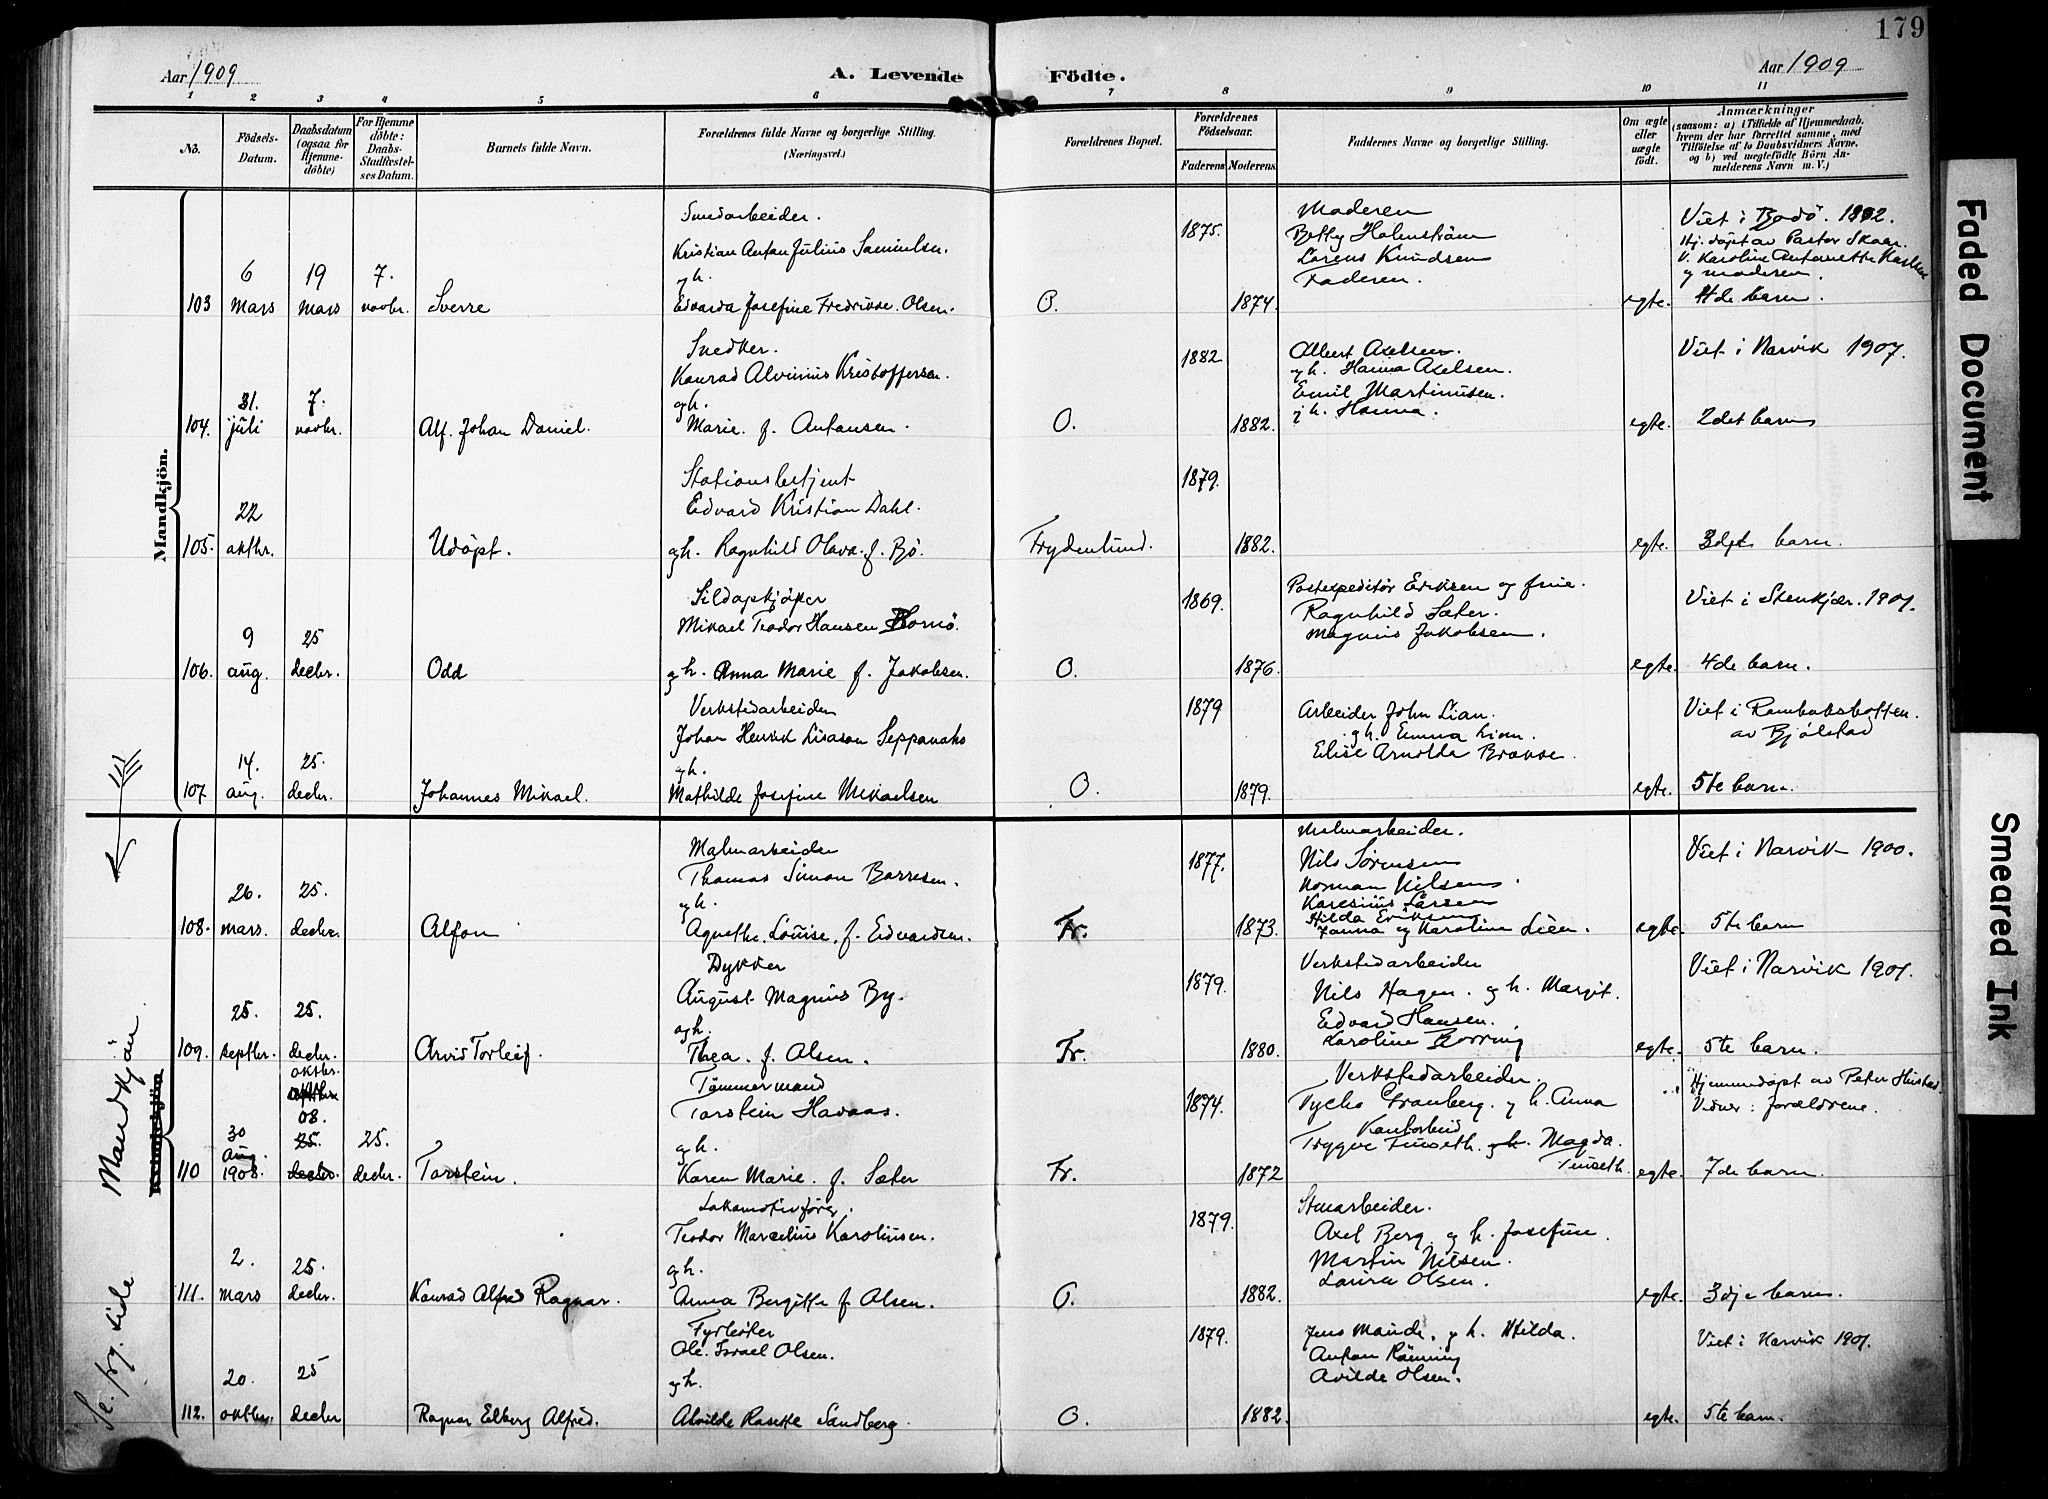 179
Aar 1909
A. Levende Födte.
Aar 1909
1 2 3 4 5 6 7 8 9 10 11
No.
Födsels-Datum.
Daabsdatum (ogsaa for Hjemme-döbte)
For Hjemme döbte: Daabs-Stadfæstel-ses Datum.
Barnets fulde Navn.
Forældrenes fulde Navne og borgerlige Stilling.
(Næringsvei.)
Forældrenes Bopæl.
Forældrenes Födselsaar.
Faderens Moderens
Faddernes Navne og borgerlige Stilling.
Om ægte eller uægte født.
Anmærkninger
(saasom: a) i Tilfælde af Hjemmedaab.
hvem der har forrettet samme, med
Tilföielse af to Daabsvidners Navne.
og b) ved uægtefödte Börn An-
melderens Navn m. V.)
Mandkjön.
103
6 Mars
19 Mars
7. novbr.
Sverre
Kristian Anton Julius Samuelsen.
gh.
Edvarda Josefine Fredrikke Olsen.
O.
1875.
1874.
Moderen
Betty Holmstrøm
Lorens Knudsen
Faderen.
egte.
Viet i Bodö. 1892.
Hj. döpt av Pastor Skaar.
V. Karoline Antonette
og moderen.
4de barn.
104.
31. juli
7. novbr.
Alf. Johan Daniel.
Snedker.
Konrad Alvinius Kristoffersen.
gh.
Marie. f. Antonsen.
O.
1882
1882.
Albert Axelsen.
gh. Hanna Axelsen.
Emil Martinusen.
g h. Hanna.
egte.
Viet i Narvik 1907.
2det barn
105.
22 oktbr.
Udöpt.
Stationsbetjent
Edvard Kristian Dahl.
gh. Ragnhild Olava. f. Bjö.
Frydenlund.
1879.
1882.
egte.
3dje barn.
106.
9 aug.
25 decbr.
Odd
Sildopkjöper
Mikael Teodor Hansen Hornö.
gh. Anna Marie f. Jakobsen.
O.
1869.
1876.
Postexpeditör Eriksen og frue.
Ragnhild Sæter.
Magnus Jakobsen.
egte.
Viet i Stenkjær. 1901.
4de barn.
107
14. aug.
25. decbr.
Johannes Mikael.
Verkstedarbeider
Johan Henrik Seppanaho
gh.
Mathilde Josefine Mikaelsen
O.
1879
1879.
Arbeider John Lian.
gh. Emma Lian.
Elise Arnolda
egte.
Viet i Rombaksbotten.
av Bjölstad
5te barn.
Mandkjön
Se. fg. side
Kvindekjön
108.
26. mars.
25. decbr.
Alfon
Malmarbeider
Thomas Simon Barresen.
gh.
Agnethe. Louise. f. Edvardsen.
Fr.
1877.
1873.
Malmarbeider.
Nils Sørensen
Norman Nilsen.
Karesius Larsen
Hilda Eriksen
Janna og Karoline Lien.
egte.
Viet i Narvik 1900.
5te barn
109.
25. septbr.
25. decbr.
Arvid Torleif.
Dykker
August Magnus By.
gh.
Thea. f. Olsen.
Fr.
1879.
1880.
Verkstedarbeider
Nils Hagen. og h. Margit.
Edvard Hansen.
Karoline
egte.
Viet i Narvik 1901.
5te barn.
110
30 Aug. 1908.
oktbr. 08.
25. decbr.
25. decbr.
Torstein.
Tömmermand
Torstein Havaas.
gh.
Karen Marie. f. Sæter
Fr.
1874.
1872
Verkstedarbeider.
Tycho Granberg. g h. Anna
Kontorbud
Trygve Tuseth. gh. Magda.
Tuseth.
egte.
Hjemmedöpt av Peter Hustad
Vidner: forældrene.
7de barn.
111.
2. mars
25. decbr.
Konrad Alfred Ragnar.
Lokomotivförer.
Teodor Marcelius Karolinsen.
gh.
Anna Bergitte f. Olsen.
O.
1879.
1882.
Axel Berg. og h. Josefine.
Martin Nilsen.
Laura Olsen.
egte.
3dje barn.
112.
20. oktbr.
25 decbr
Ragnar Elberg Alfred.
Fyrböter
Ole. Israel Olsen.
gh.
Alvilde Rosette Sandberg.
O.
1879.
1882.
Jens Maude. g h. Hilda.
Anton Rönning
Avilde Olsen.
egte.
Viet i Narvik 1901.
5te barn.
Faded Document
Smeared Ink